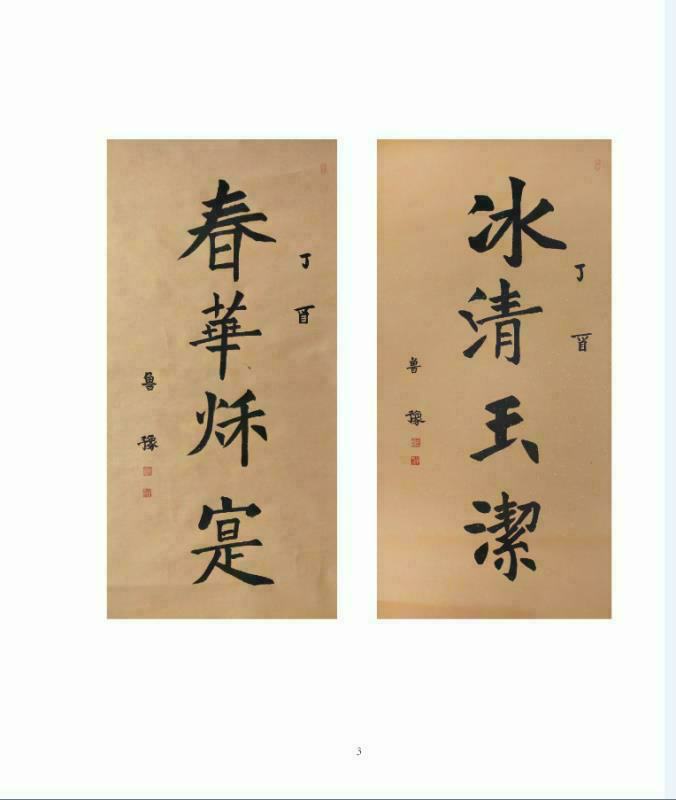 冰清玉潔
丁酉
魯豫
春華秌寔
丁酉
魯豫
3